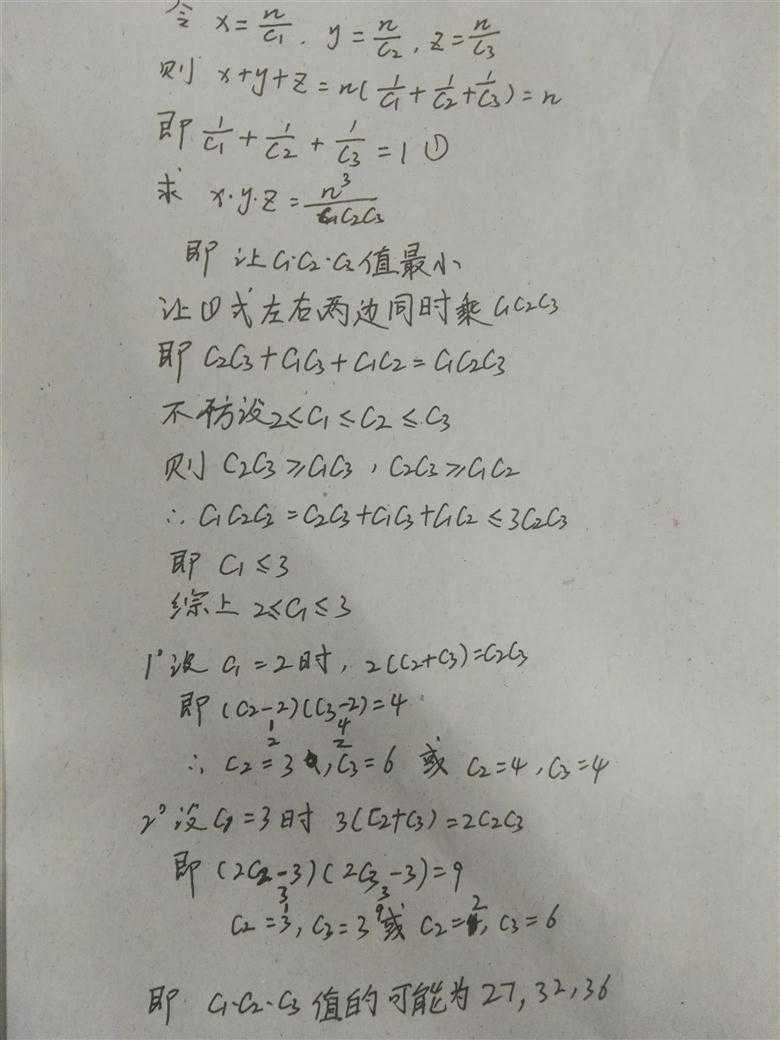 令 x = n/C1, y = n/C2, z = n/C3
则 x+y+z = n(1/C1 + 1/C2 + 1/C3) = n
即 1/C1 + 1/C2 + 1/C3 = 1 ①
求 x·y·z = n³/C1C2C3
即 让 C1·C2·C3 值最小
让①式左右两边同时乘 C1C2C3
即 C2C3 + C1C3 + C1C2 = C1C2C3
不妨设 2≤C1≤C2≤C3
则 C2C3 ≥ C1C3, C2C3 ≥ C1C2
∴ C1C2C2 = C2C3 + C1C3 + C1C2 ≤ 3C2C3
即 C1 ≤ 3
综上 2≤C1≤3
1° 设 C1 = 2 时, 2(C2+C3) = C2C3
即 (C2-2)(C3-2) = 4
1 4
2 2
∴ C2 = 3, C3 = 6 或 C2 = 4, C3 = 4
2° 设 C1 = 3 时 3(C2+C3) = 2C2C3
即 (2C2-3)(2C3-3) = 9
3 3
1 9
C2 = 3, C3 = 3 或 C2 = 2, C3 = 6
即 C1·C2·C3 值的可能为 27, 32, 36